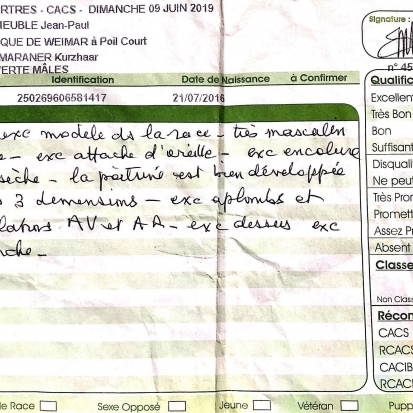 RTRES - CACS - DIMANCHE 09 JUIN 2019
IEUBLE Jean-Paul
QUE DE WEIMAR à Poil Court
MARANER Kurzhaar
VERTE MÂLES
Signature :
n° 45
Identification Date de Naissance à Confirmer
250269606581417 21/07/2016
Qualific
Excellent
Très Bon
Bon
Suffisant
Disquali
Ne peut
Très Pro
Promett
Assez Pr
Absent
exc modèle ds la race - très masculin
e - exc attache d'oreille - exc encolure
sèche - la poitrine est bien développée
s 3 dimensions - exc aplombs et
AV et AR - exc dessus exc
che -
Classe
Non Class
Récon
CACS
RCACS
CACIB
RCACI
de Race Sexe Opposé Jeune Vétéran Pupp